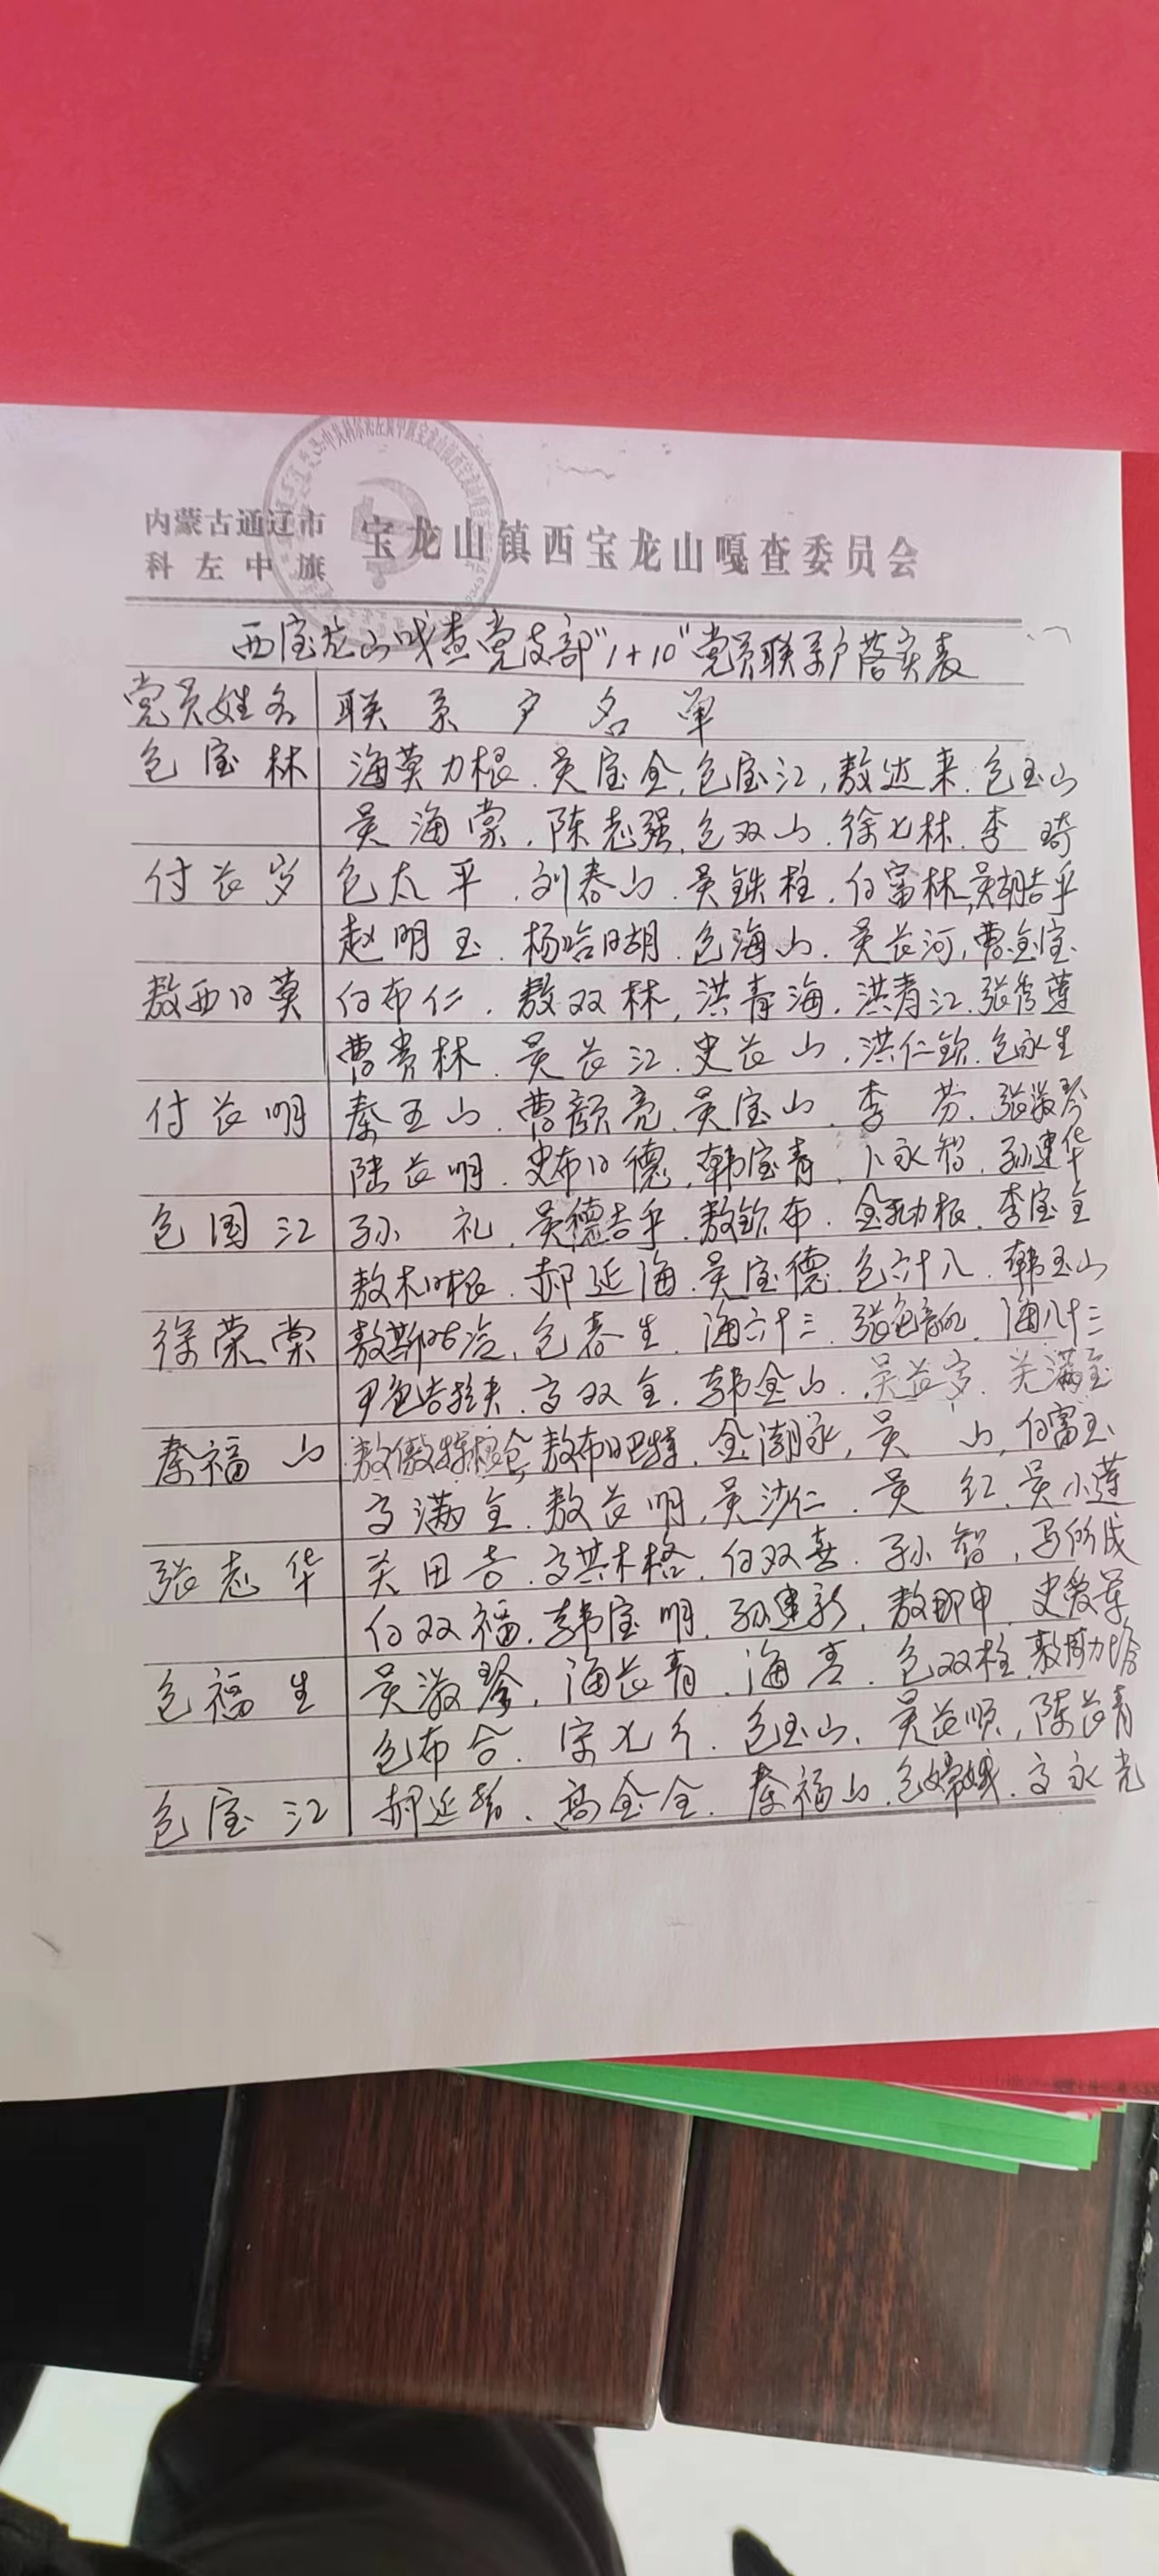 内蒙古通辽市
科左中旗
宝龙山镇西宝龙山嘎查委员会
西宝龙山嘎查党支部"1+10"党员联系户落实表
党员姓名 联系户名单
包宝林 海莫力根、吴宝金、包宝江,敖达来、包玉山
吴海棠、陈志强、包双山、徐七林、李琦
付长岁 包太平、刘春山、吴铁柱、白富林、吴胡吉乎
赵明玉、杨哈日胡、包海山、吴长河,曹金宝
敖西日莫 白布仁、敖双林,洪青海、洪青江、张秀莲
曹贵林、吴长江、史长山、洪仁钦、包永生
付长明 秦玉山、曹颜亮、吴宝山、李芬、张淑琴
陆长明、史布日德,韩宝青、卜永智、孙建华
包国江 孙礼、吴德吉乎、敖钦布、李宝全
郝延海、吴宝德、包六十八、韩玉山
徐荣棠 包春生、海六十三、海八十三
高双全、韩金山、吴长岁、关满宝
秦福山 敖布日巴特、金潮永,吴山,白富玉
高满全、敖长明,吴沙仁、吴红、吴小莲
张志华 关田吉、高其木格、白双喜、孙智,
白双福、韩宝明、孙建新,敖那申、史爱军
包福生 吴淑琴,海长青、海青、包双柱
包布合、宋七斤、包玉山、吴长顺,陈长青
包宝江 高金全、秦福山、包嫦娥、高永光